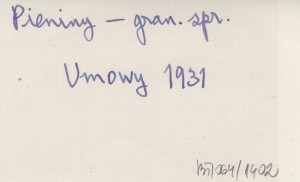 Pieniny – gran. spr.
Umowy 1931
BJ/064/1402